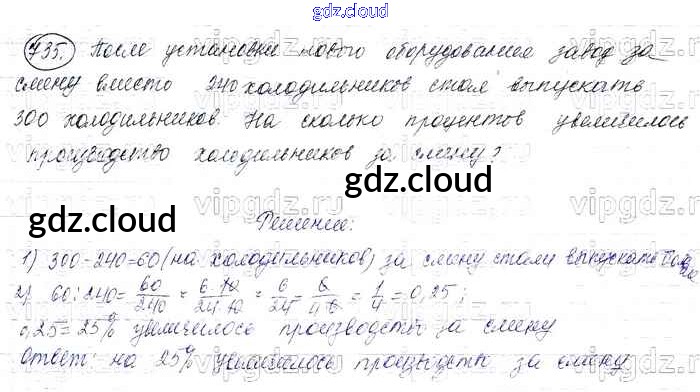 gdz.cloud
735. После установки нового оборудования завод за
смену вместо 240 холодильников стал выпускать
300 холодильников. На сколько процентов увеличилось
производство холодильников за смену?
gdz.cloud
gdz.cloud
Решение:
1) 300-240=60 (на холодильников) за смену стали выпускать
2) 60:240= 60/240 = 6·10/24·10 = 6/24 = 6/4·6 = 1/4 = 0,25;
0,25=25% увеличилось производство за смену
Ответ: на 25% увеличилось производств за смену